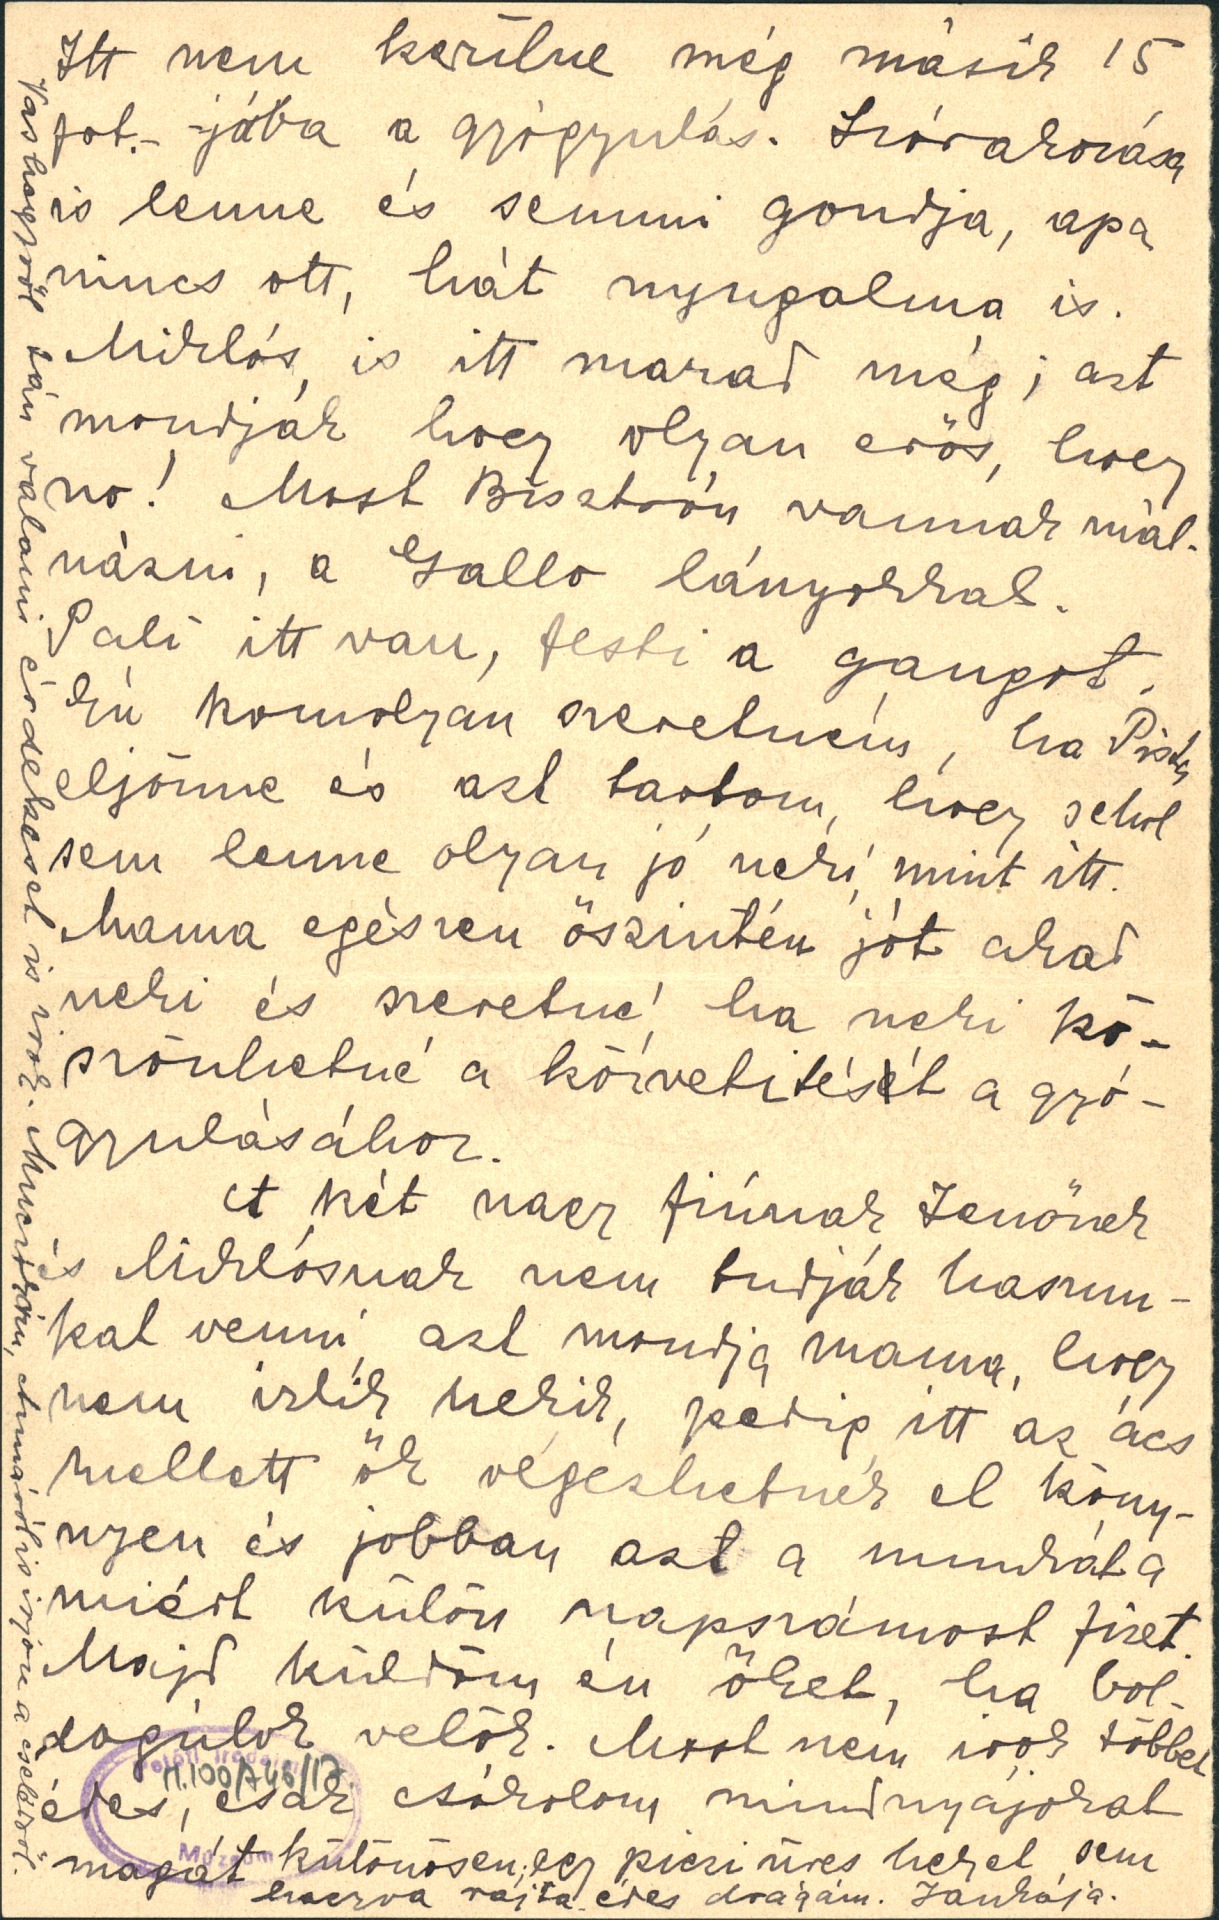 Itt nem kerülne még másik 15
frt.- -jába a gyógyulás. Szórakozása
is lenne és semmi gondja, apa
nincs ott, hát nyugalma is.
Miklós is itt marad még; azt
mondják hogy olyan erős, hogy
no! Most Bisztrón vannak mál-
názni, a Gallo lányokkal.
Pali itt van, festi a gangot.
Én komolyan szeretném, ha Pista
eljönne és azt tartom, hogy sehol
sem lenne olyan jó neki, mint itt.
Mama egészen őszintén jót akad
neki és szeretné, ha neki kö-
szönhetné a közvetitését a gyó-
gyulásához.
A két nagy fiúnak Jenőnek
és Miklósnak nem tudják haszun-
kat venni, azt mondja mama, hogy
nem izlik nekik, pedig itt az ács
mellett ők végezhetnék el köny-
nyen és jobban azt a munkát a
miért külön napszámost fizet.
Majd küldöm én őket, ha bol-
dogúlok velök. Most nem irok többet
édes, csak csókolom mindnyájokat
magát különösen, egy piczi üres helyet sem
hagyva rajta édes drágám. Jankája.
Vashegyről tán valami érdekeset is irok. Muczikám, Annáról is irjon a cselédről.
Petőfi Irodalmi
Múzeum